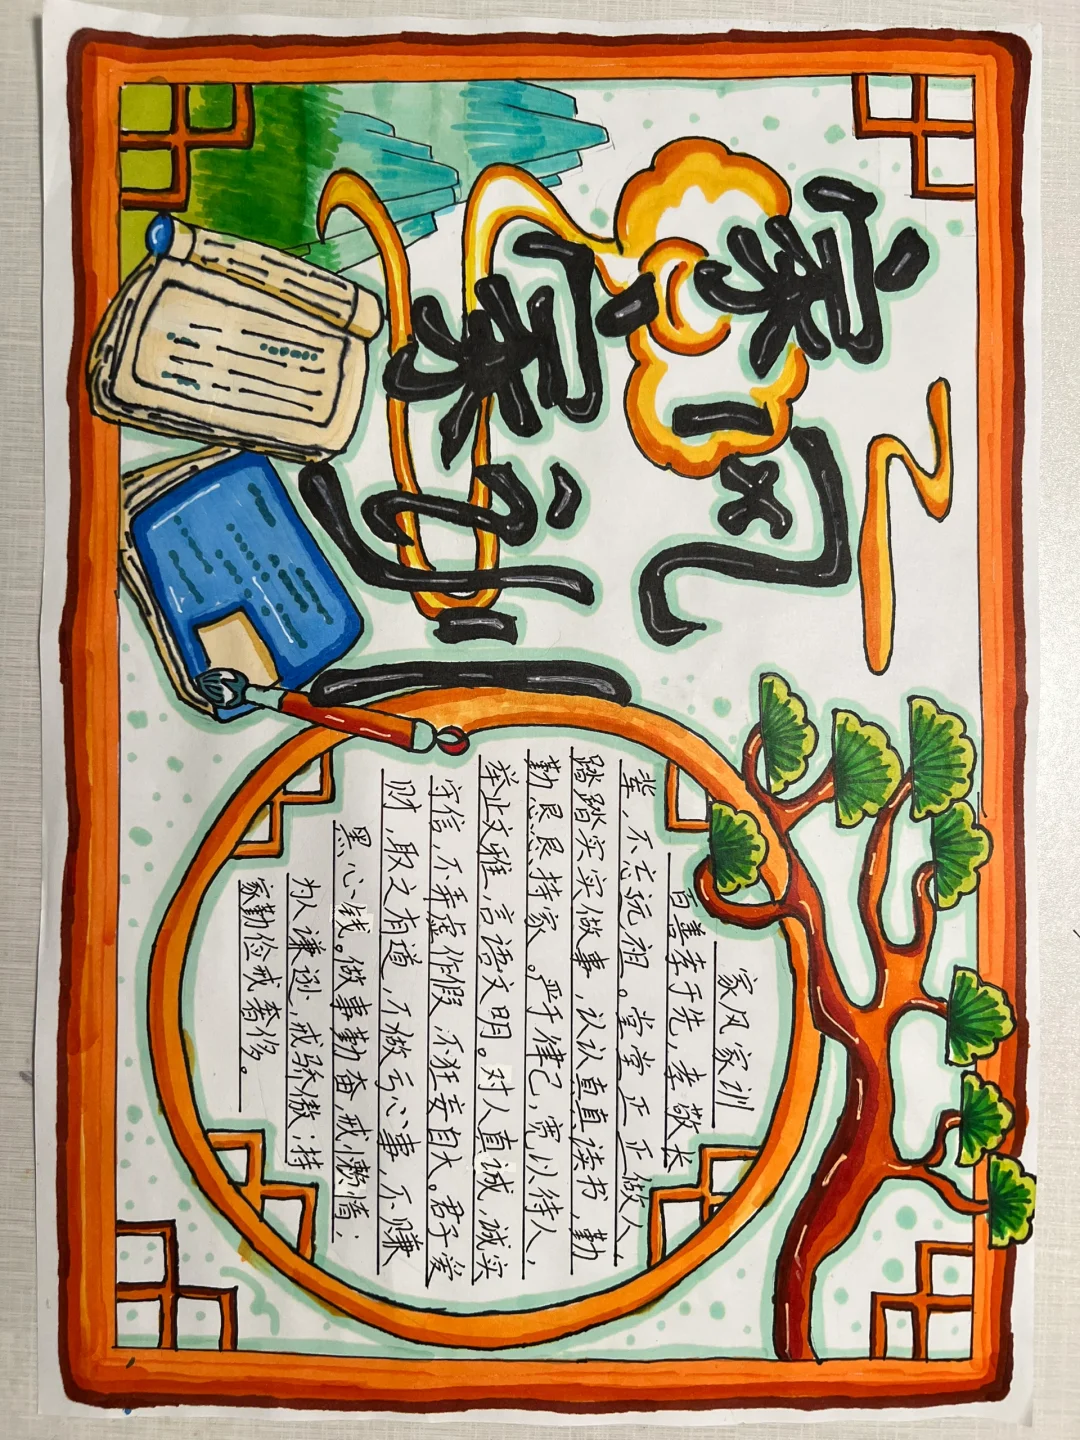 家风
家训
家风家训
百善孝于先，孝敬长
辈，不忘远祖。堂堂正正做人，
踏踏实实做事，认认真真读书，勤
勤恳恳持家。严于律己，宽以待人，
举止文雅，言语文明。对人真诚，诚实
守信，不弄虚作假，不狂妄自大。君子爱
财，取之有道，不做亏心事，不赚
黑心钱。做事勤奋，戒懒惰；
为人谦逊，戒骄傲；持
家勤俭戒奢侈。